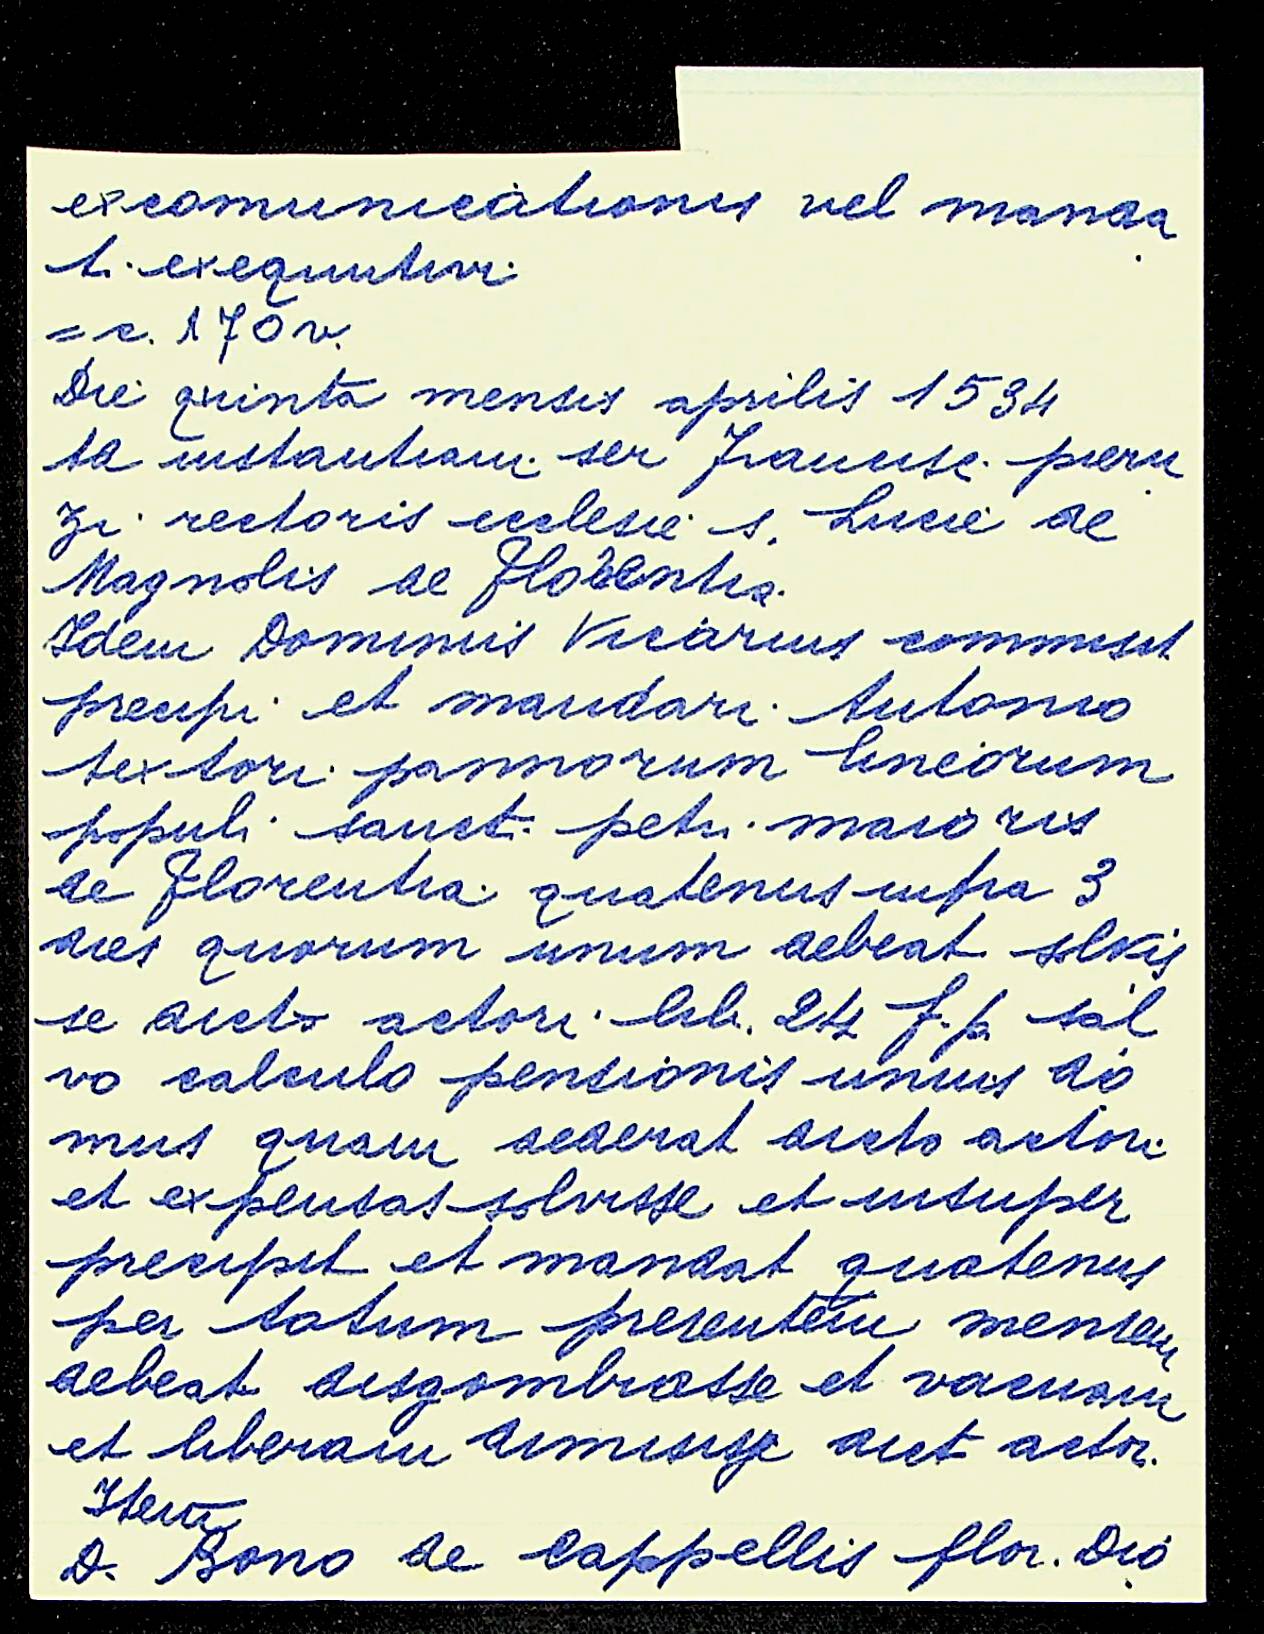 excomunicationis vel manda
ti exequutivi
= c. 170 v.
Die quinta mensis aprilis 1534
ad instantiam ser Francisc. pieru
zi rectoris ecclesie s. Lucie de
Magnolis de Florentia.
Idem Dominus Vicarius commisit
precipi et mandari Antonio
textori pannorum lineorum
populi sancti petri maioris
de Florentia quatenus infra 3
dies quorum unum debeat solvis
se dicto actori lib. 24 f. p. sal
vo calculo pensionis unius do
mus quam dederat dicto actori
et expensas solvisse et insuper
precipit et mandat quatenus
per totum presentem mensem
debeat disgombrasse et vacuam
et liberam dimisisse dict actor.
Item
D. Bono de Cappellis flor. Dio